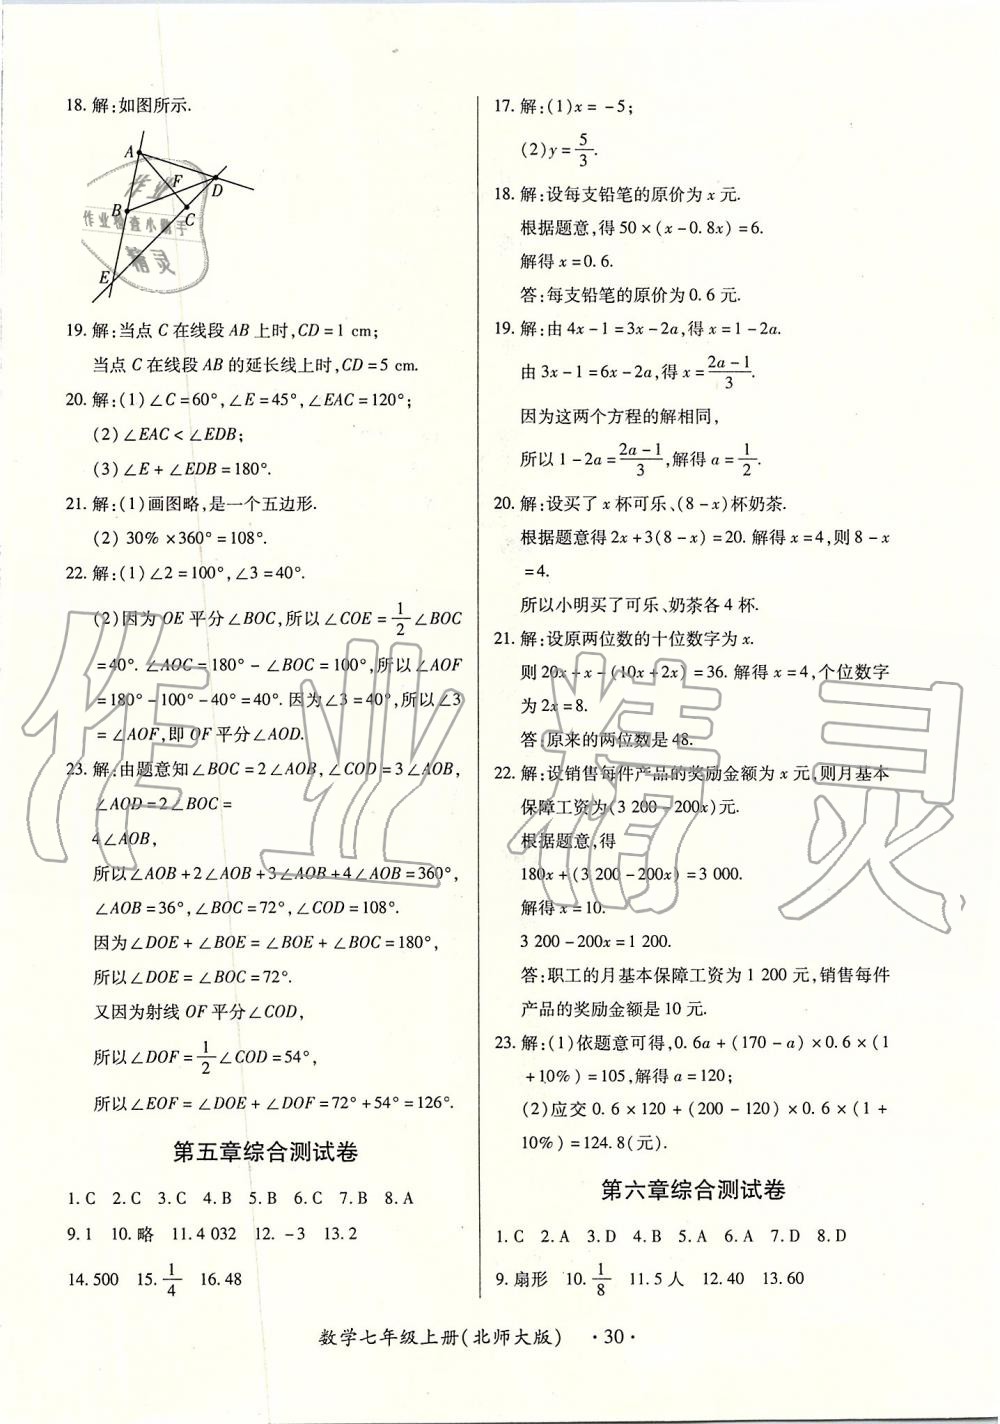 18. 解:如图所示.
A
F
D
B
C
E
19. 解:当点 C 在线段 AB 上时,CD=1 cm;
当点 C 在线段 AB 的延长线上时,CD=5 cm.
20. 解:(1)∠C=60°,∠E=45°,∠EAC=120°;
(2)∠EAC<∠EDB;
(3)∠E+∠EDB=180°.
21. 解:(1)画图略,是一个五边形.
(2) 30%×360°=108°.
22. 解:(1)∠2=100°,∠3=40°.
(2)因为 OE 平分∠BOC,所以∠COE=1/2∠BOC
=40°.∠AOC=180°-∠BOC=100°,所以∠AOF
=180°-100°-40°=40°.因为∠3=40°,所以∠3
=∠AOF,即 OF 平分∠AOD.
23. 解:由题意知∠BOC=2∠AOB,∠COD=3∠AOB,
∠AOD=2∠BOC=
4∠AOB,
所以∠AOB+2∠AOB+3∠AOB+4∠AOB=360°,
∠AOB=36°,∠BOC=72°,∠COD=108°.
因为∠DOE+∠BOE=∠BOE+∠BOC=180°,
所以∠DOE=∠BOC=72°.
又因为射线 OF 平分∠COD,
所以∠DOF=1/2∠COD=54°,
所以∠EOF=∠DOE+∠DOF=72°+54°=126°.
第五章综合测试卷
1. C 2. C 3. C 4. B 5. B 6. C 7. B 8. A
9. 1 10. 略 11. 4 032 12. -3 13. 2
14. 500 15. 1/4 16. 48
17. 解:(1)x=-5;
(2)y=5/3.
18. 解:设每支铅笔的原价为 x 元.
根据题意,得 50×(x-0.8x)=6.
解得 x=0.6.
答:每支铅笔的原价为 0.6 元.
19. 解:由 4x-1=3x-2a,得 x=1-2a.
由 3x-1=6x-2a,得 x=(2a-1)/3.
因为这两个方程的解相同,
所以 1-2a=(2a-1)/3,解得 a=1/2.
20. 解:设买了 x 杯可乐、(8-x)杯奶茶.
根据题意得 2x+3(8-x)=20. 解得 x=4,则 8-x
=4.
所以小明买了可乐、奶茶各 4 杯.
21. 解:设原两位数的十位数字为 x.
则 20x+x-(10x+2x)=36. 解得 x=4,个位数字
为 2x=8.
答:原来的两位数是 48.
22. 解:设销售每件产品的奖励金额为 x 元,则月基本
保障工资为(3 200-200x)元.
根据题意,得
180x+(3 200-200x)=3 000.
解得 x=10.
3 200-200x=1 200.
答:职工的月基本保障工资为 1 200 元,销售每件
产品的奖励金额是 10 元.
23. 解:(1)依题意可得,0.6a+(170-a)×0.6×(1
+10%)=105,解得 a=120;
(2)应交 0.6×120+(200-120)×0.6×(1+
10%)=124.8(元).
第六章综合测试卷
1. C 2. A 3. D 4. B 5. A 6. A 7. D 8. D
9. 扇形 10. 1/8 11. 5 人 12. 40 13. 60
数学七年级上册(北师大版) ·30·
作业精灵
作业
作业检查小助手
精灵